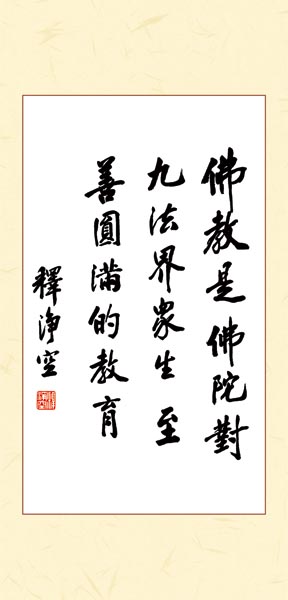 佛教是佛陀對
九法界眾生至
善圓滿的教育
釋淨空